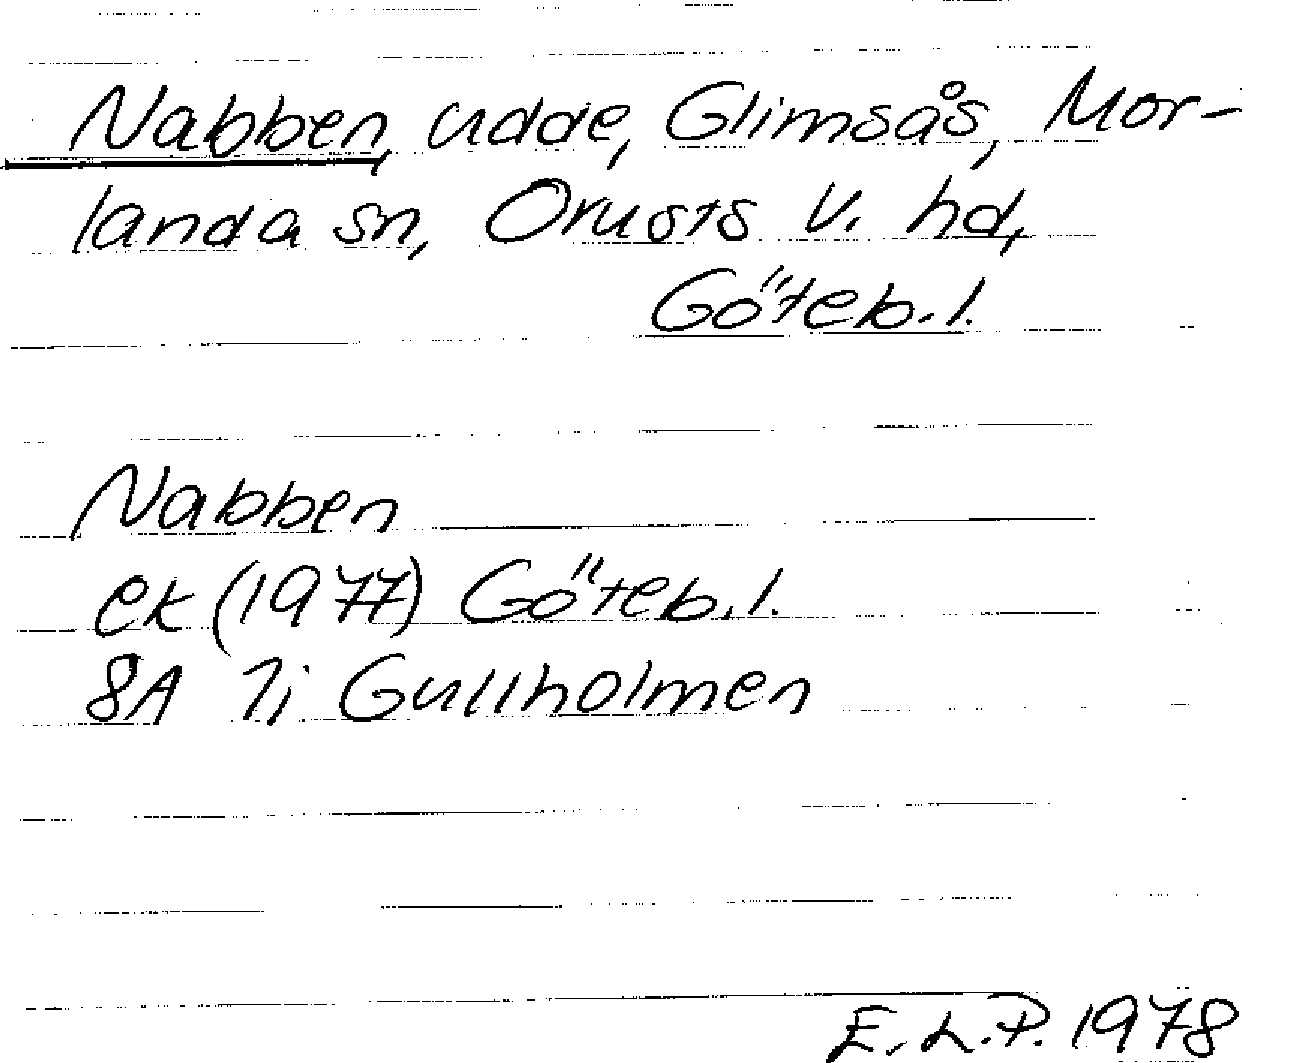 Nabben, udde, Glimsås, Mor-
landa sn, Orusts V. hd,
Göteb. l.
Nabben
ek (1977) Göteb. l.
8A 7i Gullholmen
E. L. P. 1978